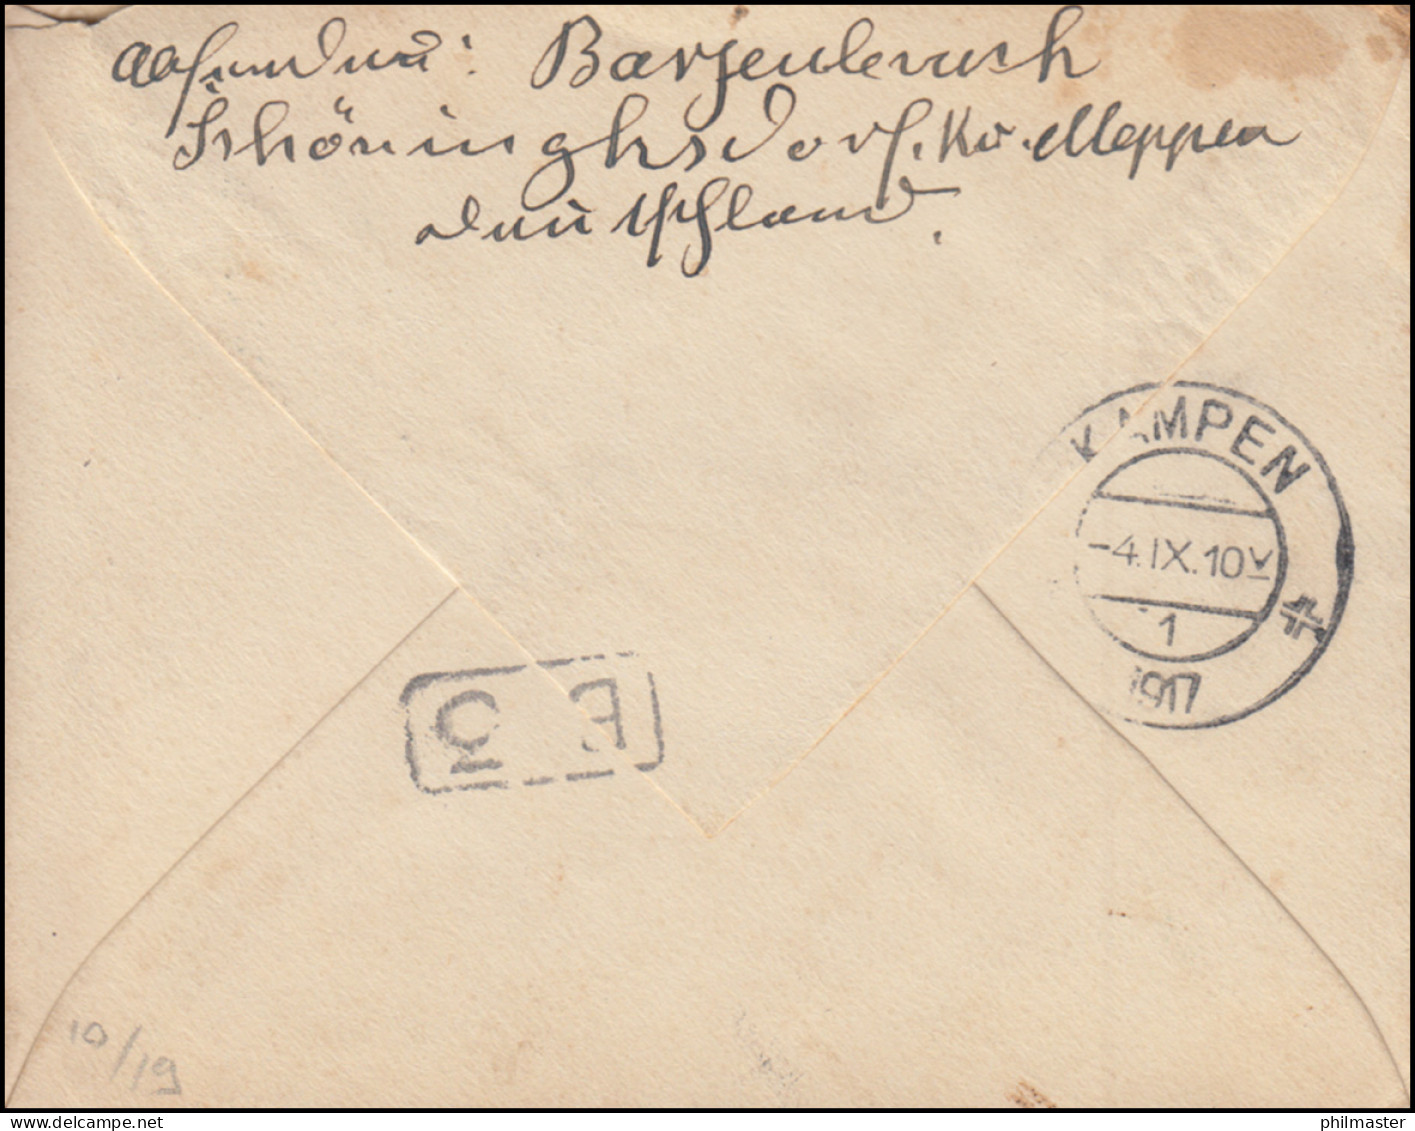 Absender: Bargenbrusch
Schöninghsdorf. Kr. Meppen
Deutschland.
KAMPEN
-4.IX.10V
1
1917
E
10/19
philmaster